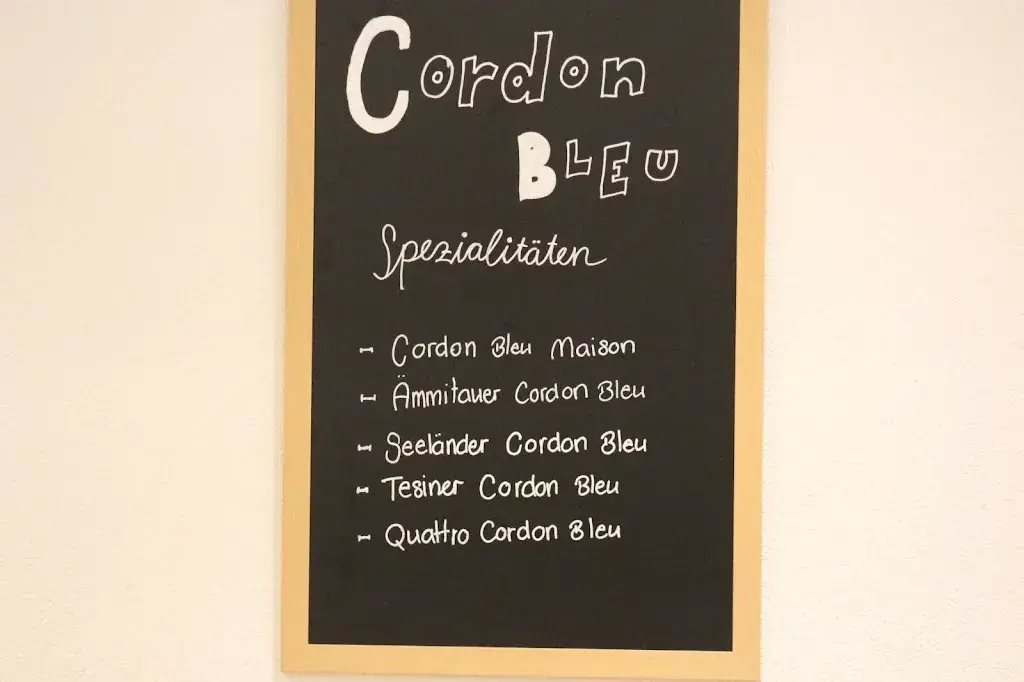 Cordon
BLEU
Spezialitäten
- Cordon Bleu Maison
- Ämmitauer Cordon Bleu
- Seeländer Cordon Bleu
- Tesiner Cordon Bleu
- Quattro Cordon Bleu